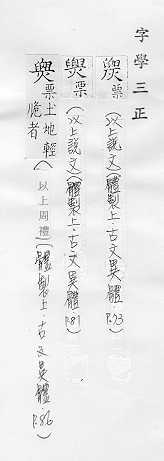 字學三正
票(以上說文)(體製上·古文異體P.73)
票(以上說文)(體製上·古文異體P.81)
票土地輕
脆者(以上周禮)(體製上·古文異體P.86)